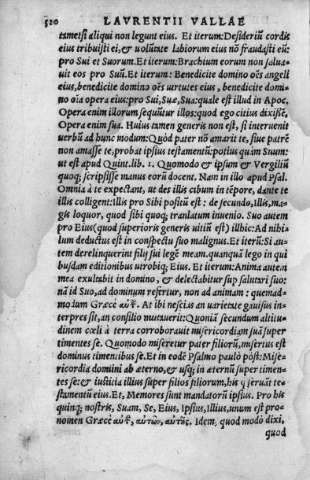 520 LAVRENTII VALLAE
tsmetsi aliqui non legunt eius. Et iterum: Desideriū cordis
eius tribuisti ei, & volūtate labiorum eius nō fraudasti eū:
pro Sui et Suorum. Et iterum: Brachium eorum non salua-
uit eos pro Suū. Et iterum: Benedicite domino oēs angeli
eius, benedicite domino oēs uirtutes eius, benedicite domi-
no oīa opera eius: pro Sui, Suæ, Sua: quale est illud in Apoc.
Opera enim illorum sequūtur illos: quod ego citius dixissē,
Opera enim sua. Huius tamen generis non est, si interuenit
uerbū ad hunc modum: Quòd pater nō amarit te, siue patrē
non amasse te, probat ipsius testamentū: potius quàm Suum:
ut est apud Quint. lib. 1. Quomodo & ipsum & Vergiliū
quoq; scripsisse manus eorū docent. Nam in illo apud Psal.
Omnia à te expectant, ut des illis cibum in tēpore, dante te
illis colligent: Illis pro Sibi positū est: de secundo, Illis, ma-
gis loquor, quod sibi quoq; tranlatum inuenio. Suo autem
pro Eius (quod superioris generis uitiū est) illhic: Ad nihi-
lum deductus est in conspectu suo malignus. Et iterū: Si au-
tem derelinquerint filij sui legē meam. quanquā lego in qui
busdam editionibus utrobiq; Eius. Et iterum: Anima autem
mea exultabit in domino, & delectabitur sup salutari suo:
nā id Suo, ad dominum refertur, non ad animam: quemad-
modum Græcè αὐτοῦ. At ibi nescius an uarietate gauisus in-
terpres sit, an consilio mutauerit: Quoniā secundum altitu-
dinem cœli à terra corroborauit misericordiam suā super
timentes se. Quomodo miseretur pater filiorū, misertus est
dominus timentibus se. Et in eodē Psalmo paulò pòst: Mise-
ricordia domini ab æterno, & usq; in æternū super timen-
tes se: & iustitia illius super filios filiorum, his q seruāt te-
stamentū eius. Et, Memores sunt mandatorū ipsius. Pro his
quinq; nostris, Suam, Se, Eius, Ipsius, Illius, unum est pro-
nomen Græcè αὐτοῦ, αὐτῶν, αὐτῆς. Idem, quod modò dixi,
quod